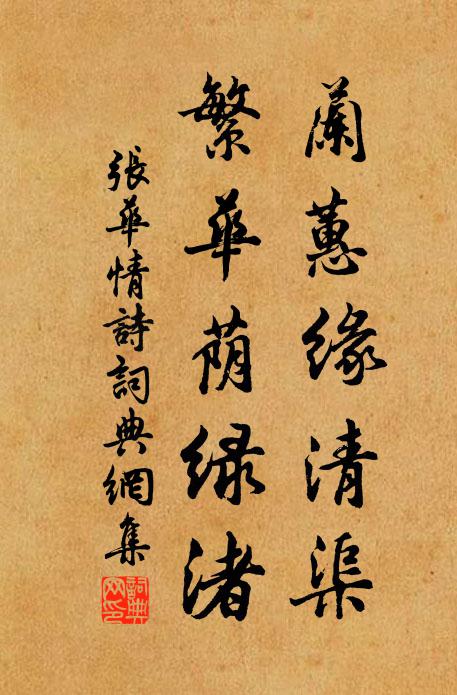 蘭蕙緣清渠
繁華荫緑渚
張華情詩詞典網集
詞典網印